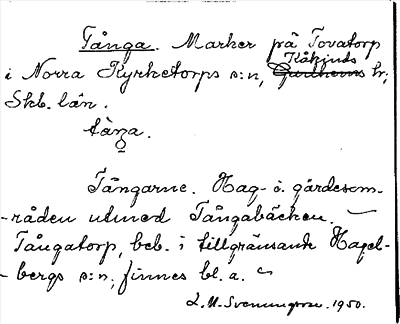 Tånga. Marker på Tovatorp
Kåkinds
i Norra Kyrketorps s:n, Gudhems hr,
Skb. län.
tåŋa.
Tångarne. Hag- o. gärdesom-
-råden utmed Tångabäcken.
Tångatorp, beb. i tillgränsande Hagel-
-bergs s:n, finnes bl. a.
1950.